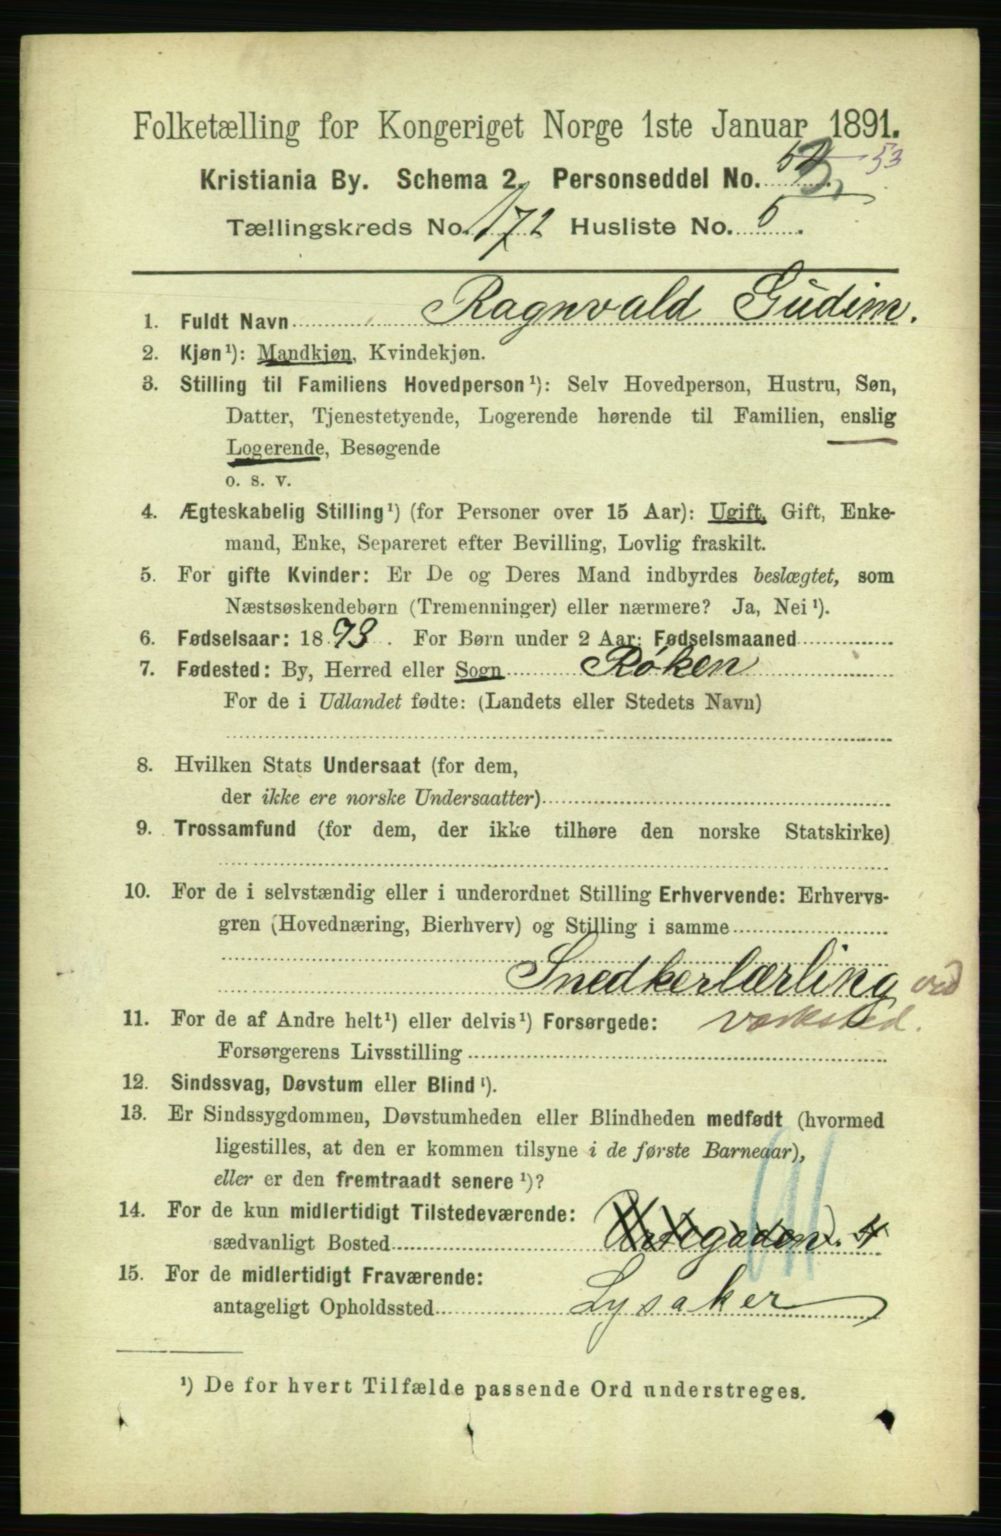 Folketælling for Kongeriget Norge 1ste Januar 1891.
Kristiania By. Schema 2. Personseddel No. 53
Tællingskreds No. 172 Husliste No. 5.
1. Fuldt Navn Ragnvald Gudim.
2. Kjøn¹): Mandkjøn, Kvindekjøn.
3. Stilling til Familiens Hovedperson¹): Selv Hovedperson, Hustru, Søn,
Datter, Tjenestetyende, Logerende hørende til Familien, enslig
Logerende, Besøgende
o. s. v.
4. Ægteskabelig Stilling¹) (for Personer over 15 Aar): Ugift, Gift, Enke-
mand, Enke, Separeret efter Bevilling, Lovlig fraskilt.
5. For gifte Kvinder: Er De og Deres Mand indbyrdes beslægtet, som
Næstsøskendebørn (Tremenninger) eller nærmere? Ja, Nei¹).
6. Fødselsaar: 1873. For Børn under 2 Aar: Fødselsmaaned
7. Fødested: By, Herred eller Sogn Røken
For de i Udlandet fødte: (Landets eller Stedets Navn)
8. Hvilken Stats Undersaat (for dem,
der ikke ere norske Undersaatter)
9. Trossamfund (for dem, der ikke tilhøre den norske Statskirke)
10. For de i selvstændig eller i underordnet Stilling Erhvervende: Erhvervs-
gren (Hovednæring, Bierhverv) og Stilling i samme
Snedkerlærling ved
11. For de af Andre helt¹) eller delvis¹) Forsørgede: værksted.
Forsørgerens Livsstilling
12. Sindssvag, Døvstum eller Blind¹).
13. Er Sindssygdommen, Døvstumheden eller Blindheden medfødt (hvormed
ligestilles, at den er kommen tilsyne i de første Barneaar),
eller er den fremtraadt senere¹)?
14. For de kun midlertidigt Tilstedeværende:
sædvanligt Bosted
15. For de midlertidigt Fraværende:
antageligt Opholdssted Lysaker
¹) De for hvert Tilfælde passende Ord understreges.